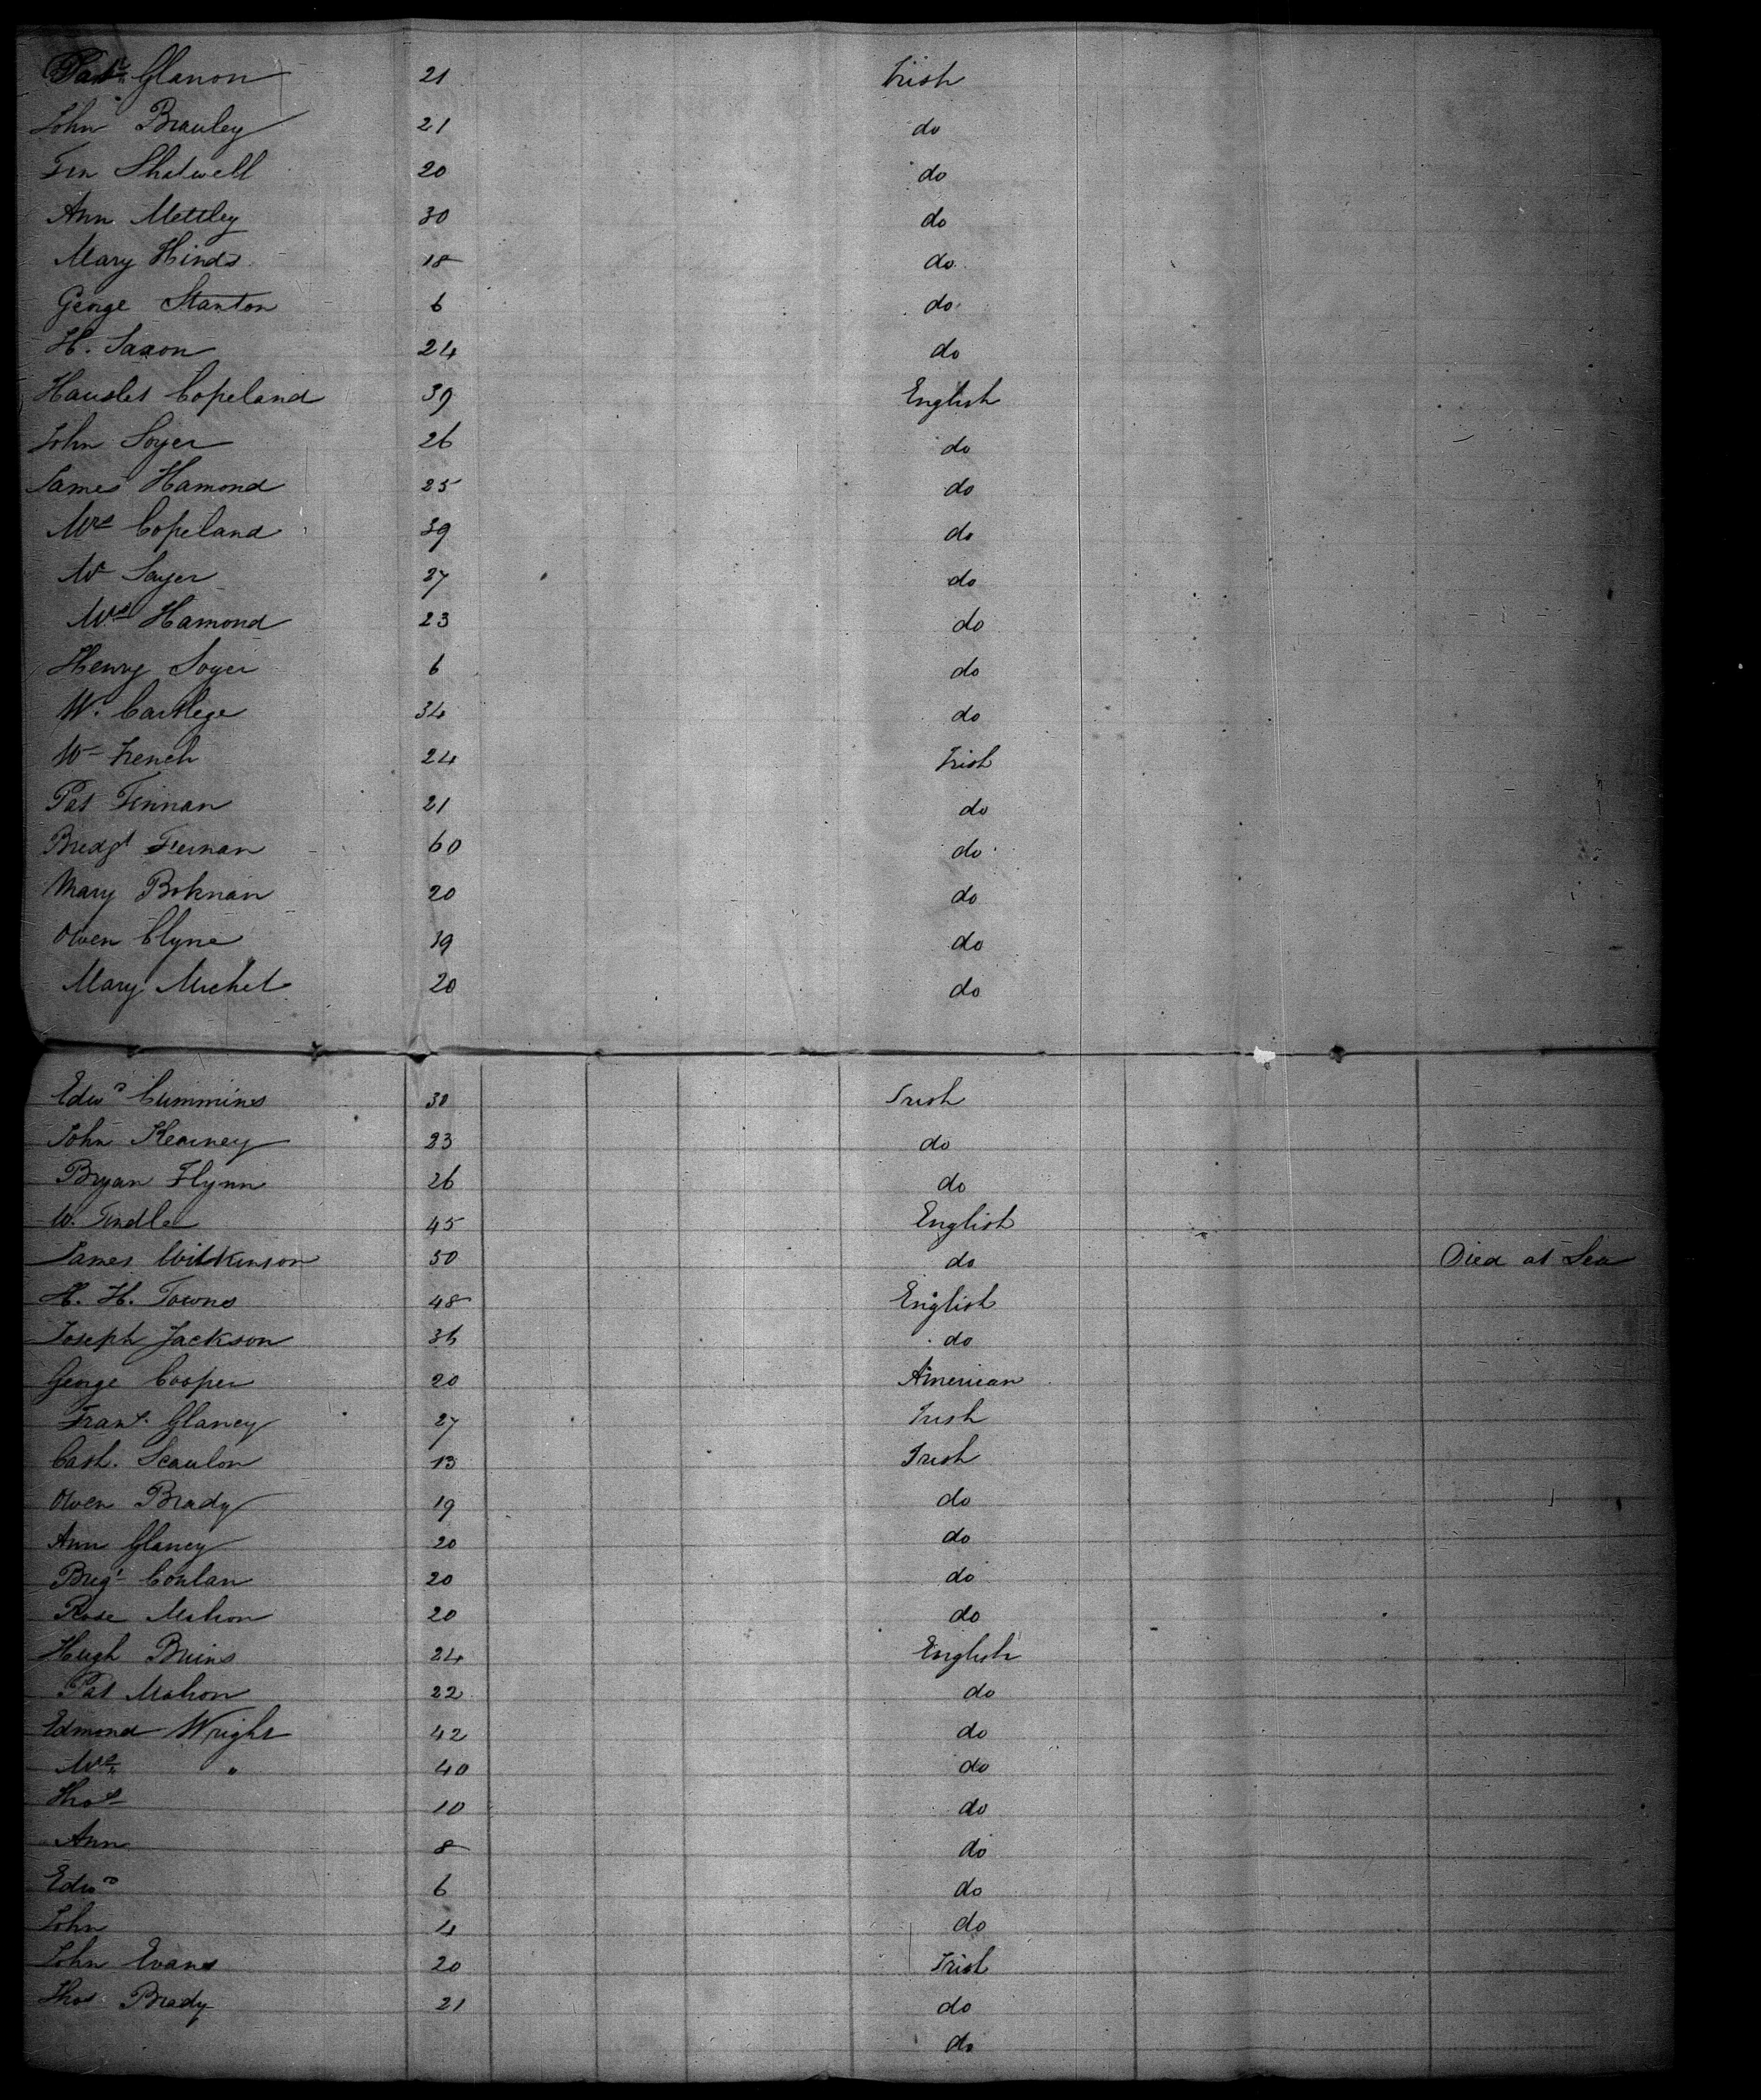 Patk Glanon 21 Irish
John Brauley 21 do
Shatwell 20 do
Ann Mettley 30 do
Mary Hinds 18 do
George Stanton 6 do
H. Saxon 24 do
Copeland 39 English
John Soyer 26 do
James Hamond 25 do
Mrs Copeland 39 do
Sayer 27 do
Mrs Hamond 23 do
Henry Soyer 6 do
W. Cartlege 34 do
Wm French 24 Irish
Pat Finnan 21 do
Bredgt 60 do
Mary Boknan 20 do
Owen Clyne 39 do
Mary Michel 20 do
Edwd Cummins 30 Irish
John Kearney 23 do
Bryan Flynn 26 do
W. Tindle 45 English
James Wilkinson 50 do Died at Sea
H. H. Towns 48 English
Joseph Jackson 36 do
George Cooper 20 American
Frans. Glancy 27 Irish
Cath. Scanlon 13 Irish
Owen Brady 19 do
Ann Glancy 20 do
Brigt Conlan 20 do
Rose Mahon 20 do
Hugh Bruins 24 English
Pat Mahon 22 do
Edmond Wright 42 do
Mrs " 40 do
Thos 10 do
Ann 8 do
Edwd 6 do
John 4 do
John Evans 20 Irish
Thos Brady 21 do
do